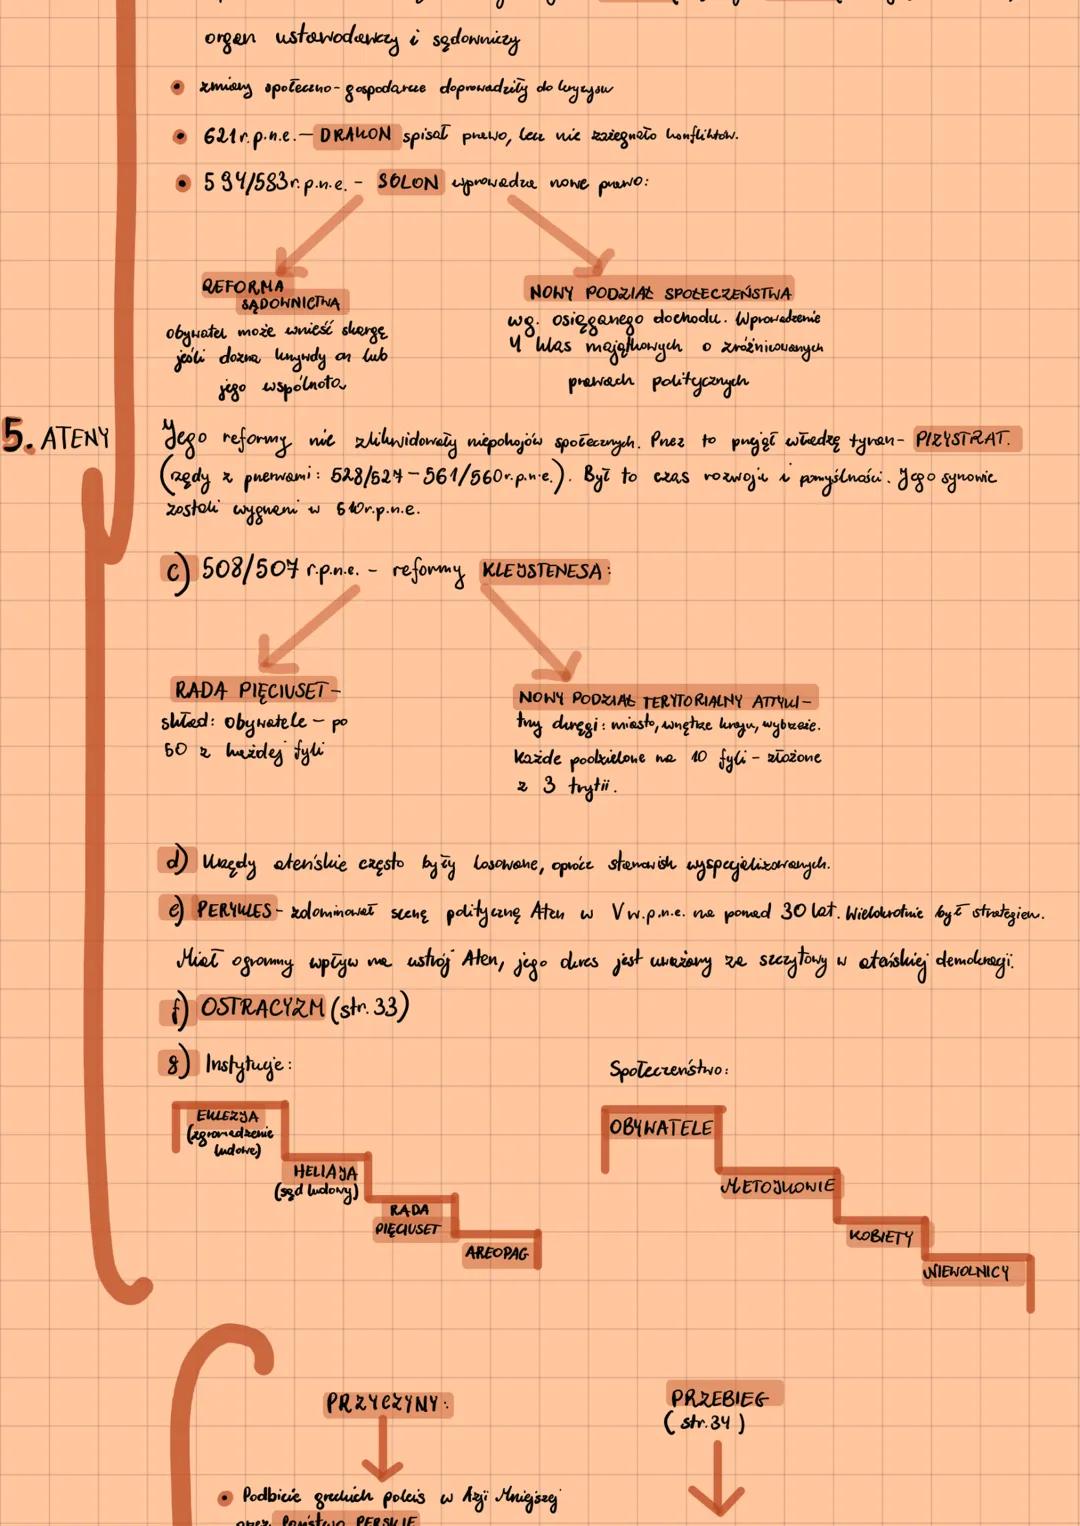 organ ustawodawczy i sądowniczy
zmiany społeczno-gospodarcze doprowadziły do kryzysu
621 r. p.n.e. - DRAKON spisał prawo, lecz nie zażegnało konfliktów.
594/593 r. p.n.e. - SOLON wprowadza nowe prawo:
REFORMA
SĄDOWNICTWA
obywatel może wnieść skargę
jeśli dozna krzywdy on lub
jego wspólnota
NOWY PODZIAŁ SPOŁECZEŃSTWA
wg. osiąganego dochodu. Wprowadzenie
4 klas majątkowych o zróżnicowanych
prawach politycznych
5. ATENY
Jego reformy nie zlikwidowały niepokojów społecznych. Przez to przejął władzę tyran - PIZYSTRAT.
(rządy z przerwami: 528/527 - 561/560 r.p.n.e.). Był to czas rozwoju i pomyślności. Jego synowie
zostali wygnani w 510 r.p.n.e.
c) 508/507 r.p.n.e. - reformy KLEJSTENESA:
RADA PIĘCIUSET -
skład: obywatele - po
50 z każdej fyli
NOWY PODZIAŁ TERYTORIALNY ATTYKI -
trzy okręgi: miasto, wnętrze kraju, wybrzeże.
Każde podzielone na 10 fyli - złożone
z 3 trytii.
d) Urzędy ateńskie często były losowane, oprócz stanowisk wyspecjalizowanych.
e) PERYKLES - zdominował scenę polityczną Aten w V w.p.n.e. na ponad 30 lat. Wielokrotnie był strategiem.
Miał ogromny wpływ na ustrój Aten, jego okres jest uważany za szczytowy w ateńskiej demokracji.
f) OSTRACYZM (str. 33)
g) Instytucje:
Społeczeństwo:
EKLEZJA
(zgromadzenie
ludowe)
HELIAJA
(sąd ludowy)
RADA
PIĘCIUSET
AREOPAG
OBYWATELE
METOJKOWIE
KOBIETY
NIEWOLNICY
PRZYCZYNY:
PRZEBIEG
(str. 34)
Podbicie greckich poleis w Azji Mniejszej
przez Państwo PERSKIE